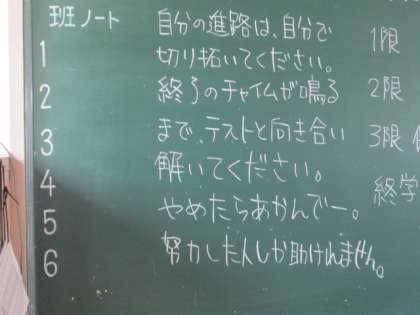 班ノート
1
2
3
4
5
6
自分の進路は、自分で
切り拓いてください。
終りのチャイムが鳴る
まで、テストと向き合い
解いてください。
やめたらあかんでー。
努力した人しか助けれません。
1限
2限
3限
終学